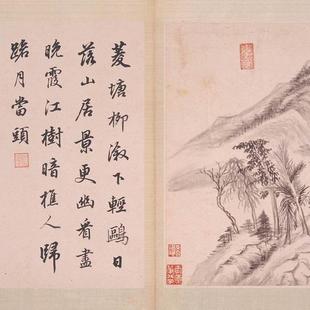 菱塘柳溆下輕鷗日
落山居景更幽看盡
晚霞江樹暗樵人歸
踏月當頭